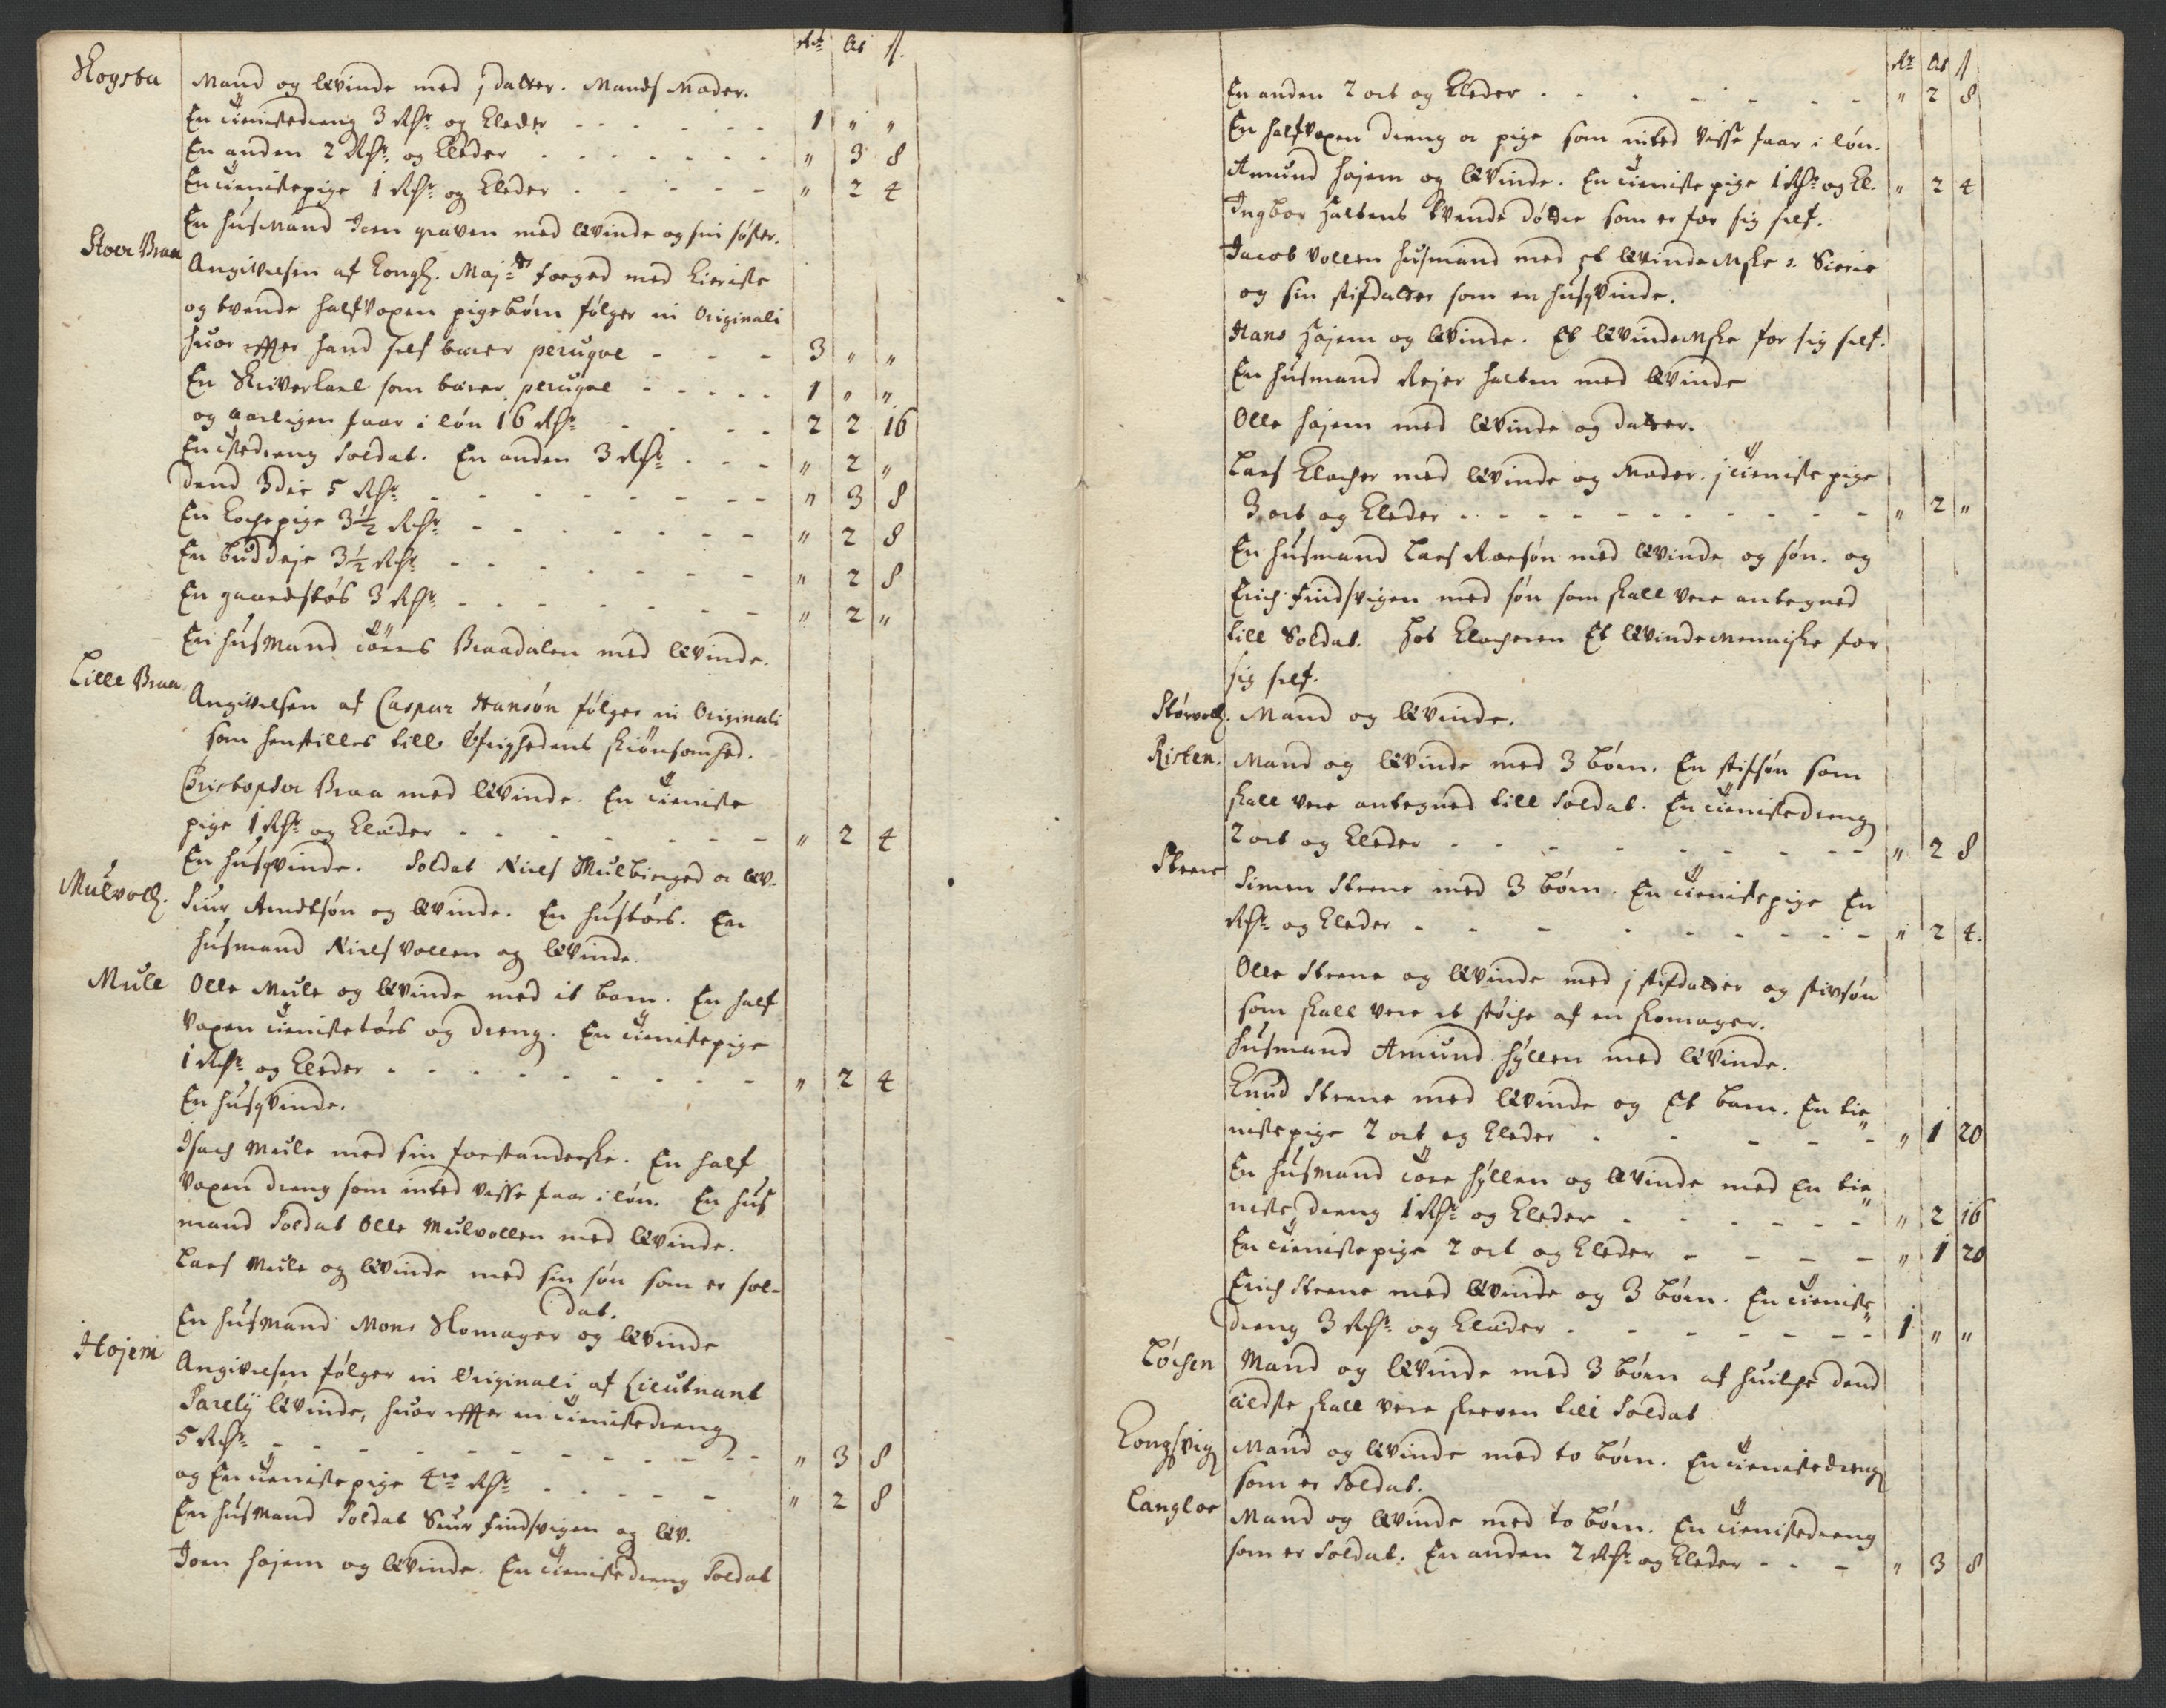 Rdr Ort ß.
Skogsta Mand og qvinde med j datter. Mands Moder.
En tienistedreng 3 Rdr og Kleder - - - - - 1 " "
En anden 2 Rdr og Kleder - - - - - " 3 8
En tienistepige 1 Rdr og Kleder - - - - - " 2 4
En husmand Joen graven med qvinde og sin søster.
Stoer Braa Angivelsen af Kongl. Maj:ts foeged med Kieriste
og tvende halfvoxen pigebørn følger in Originali
huor effter hand self bærer peruqve - - - 3 " "
En Skriverkarl som bærer peruqve - - - - 1 " "
og aarligen faar i løn 16 Rdr - - - - 2 2 16
En dreng Soldat. En anden 3 Rdr - - - " 2 "
dend 3die 5 Rdr - - - - - - " 3 8
En Kochepige 3½ Rdr - - - - - " 2 8
En buddeje 3½ Rdr - - - - - " 2 8
En gaardtøs 3 Rdr - - - - - " 2 "
En husmand Braadalen med qvinde.
Lille Braa Angivelsen af Caspar Hansøn følger in Originali
som henstilles till øfrighedens skiønsomhed.
Christopher Braa med qvinde. En tieniste
pige 1 Rdr og Klæder - - - - - " 2 4
En husqvinde. Soldat Niels Mulbierged oc qv.
Mulvoll. Siur Arndtsøn og qvinde. En hustøes. En
husmand Niels Vollen og qvinde.
Mule Olle Mule og qvinde med it barn. En half
voxen tienistetøes og dreng. En tienistepige
1 Rdr og Kleder - - - - - " 2 4
En husqvinde.
Isach Mule med sin forstanderske. En half
voxen dreng som inted visse faar i løn. En hus
mand Soldat Olle Mulvollen med qvinde.
Lars Mule og qvinde med sin søn som er sol-
dat.
En husmand Mons Skomager og qvinde
Hojem Angivelsen følger in Originali af Lieutnant
Parelij qvinde, huor effter en tienistedreng
5 Rdr - - - - - - " 3 8
og En tienistepige 4re Rdr - - - - - " 2 8
En husmand Soldat Siur Findsvigen og qv.
Joen hojem og qvinde. En tienistedreng Soldat
Rr Ort ß
En anden 2 ort og Kleder - - - - - " 2 8
En halfvoxen dreng oc pige som inted visse faar i løn.
Amund hojem og qvinde. En tieniste pige 1 Rdr og Kl. " 2 4
Ingbor haltens tvende døttre som er for sig self.
Jacob Vollen husmand med et qvindemske n. Sierie
og sin stifdatter som en husqvinde.
Hans Hojem og qvinde. Et qvindemske for sig self.
En husmand Rejer halten med qvinde
Olle hojem med qvinde og datter.
Lars Klocher med qvinde og Moder. j tieniste pige
3 ort og Kleder - - - - - - " 2 "
En husmand Lars Roesøn med qvinde og søn. og
Erich Findsvigen med søn som skall vere antegned
till Soldat. Hos Klocheren Et qvindemenniske for
sig self.
Størvoll. Mand og qvinde.
Risten. Mand og qvinde med 3 børn. En stifsøn som
skall vere antegned till Soldat. En tienistedreng
2 ort og Kleder - - - - - " 2 8
Steene Simen Steene med 3 børn. En tienistepige En
Rdr og Kleder - - - - - " 2 4.
Olle Steene og qvinde med j stifdatter og stivsøn
som skall vere et støche af en skomager.
Husmand Amund hyllen med qvinde.
Knud Steene med qvinde og Et barn. En tie
nistepige 2 ort og Kleder - - - - - " 1 20
En husmand Tore hyllen og qvinde med En tie
niste dreng 1 Rdr og Kleder - - - - - " 2 16
En tienistepige 2 ort og Kleder - - - - " 1 20
Erich Steene med qvinde og 3 børn. En tieniste
dreng 3 Rdr og Klæder - - - - - 1 " "
Løchen Mand og qvinde med 3 børn af huilche dend
ældste skall vere skreven till Soldat
Kongsvig Mand og qvinde med to børn. En tienistedreng
som er Soldat.
Langloe Mand og qvinde med to børn. En tienistedreng
som er Soldat. En anden 2 Rdr og Kleder - - - " 3 8